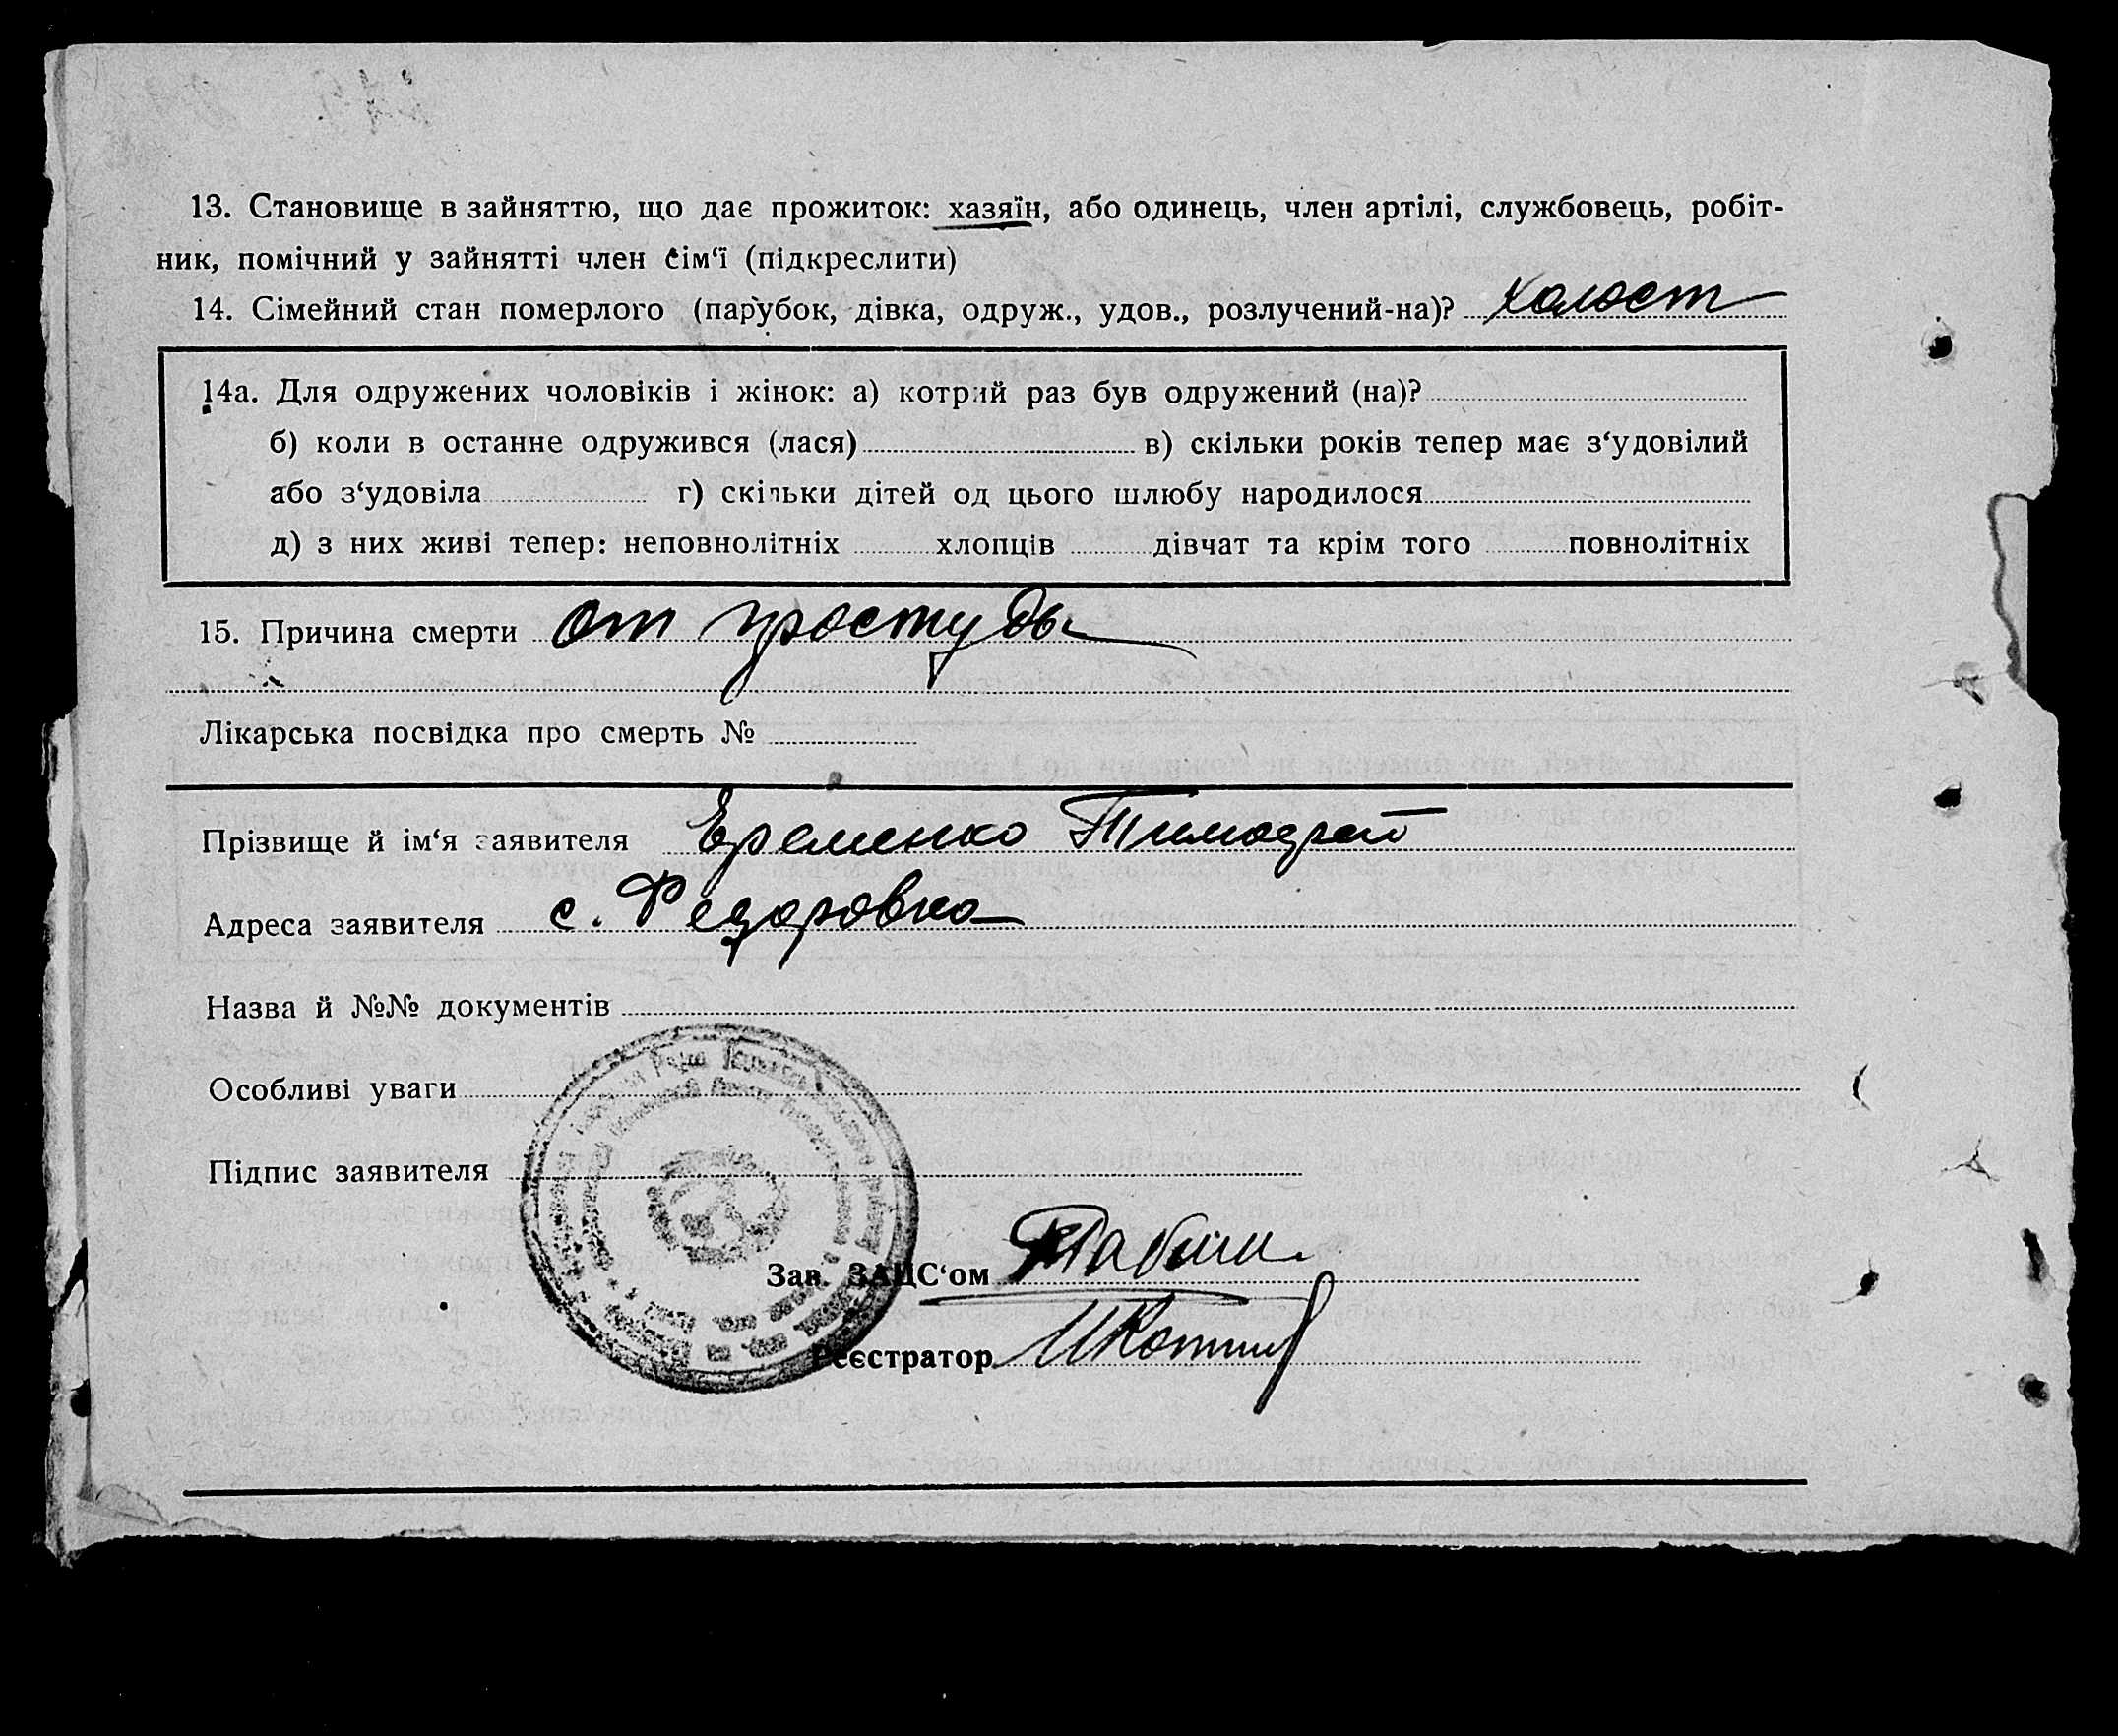 13. Становище в зайняттю, що дає прожиток: хазяїн, або одинець, член артілі, службовець, робіт-
ник, помічний у зайнятті член сім‘ї (підкреслити)
14. Сімейний стан померлого (парубок, дівка, одруж., удов., розлучений-на)? холост
14а. Для одружених чоловіків і жінок: а) котрий раз був одружений (на)?
б) коли в останне одружився (лася) в) скільки років тепер має з‘удовілий
або з‘удовіла г) скільки дітей од цього шлюбу народилося
д) з них живі тепер: неповнолітніх хлопців дівчат та крім того повнолітніх
15. Причина смерти от простуды
Лікарська посвідка про смерть №
Прізвище й ім‘я заявителя Еременко Тимофей
Адреса заявителя с. Федоровка
Назва й №№ документів
Особливі уваги
Підпис заявителя
Зав. ЗАЦС‘ом
Реєстратор